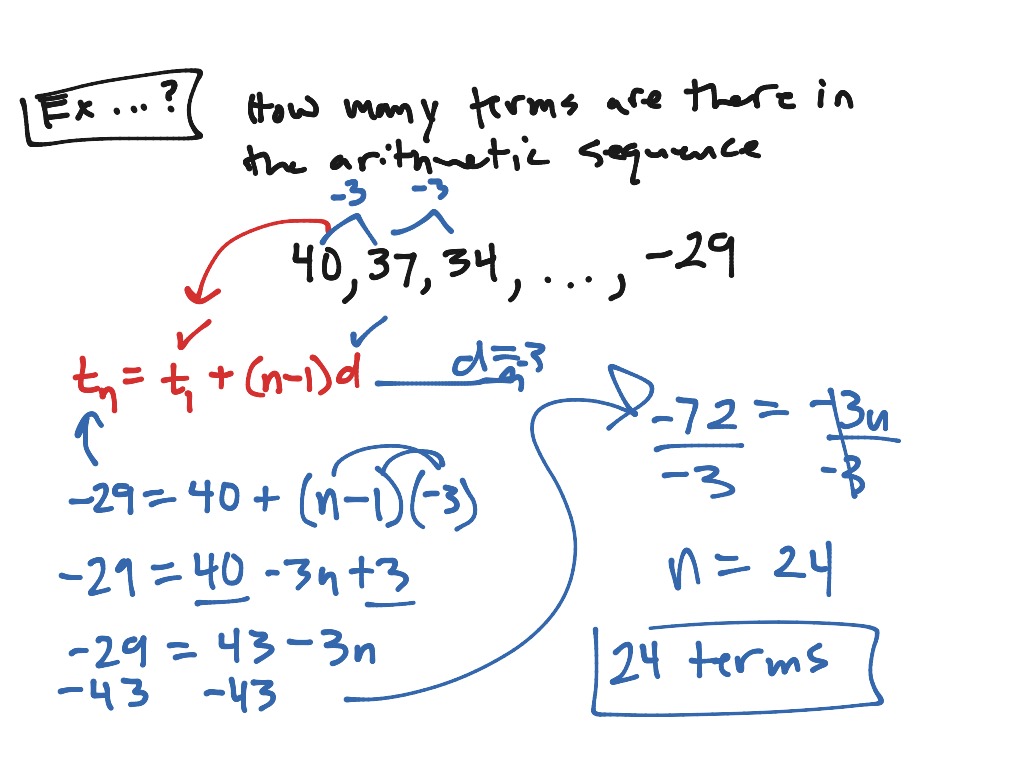 Ex ...?
How many terms are there in
the arithmetic sequence
-3 -3
40, 37, 34, ..., -29
tₙ = t₁ + (n-1)d
d=-3
-29 = 40 + (n-1)(-3)
-29 = 40 -3n +3
-29 = 43 - 3n
-43 -43
-72 = -3n
-3 -3
n = 24
24 terms